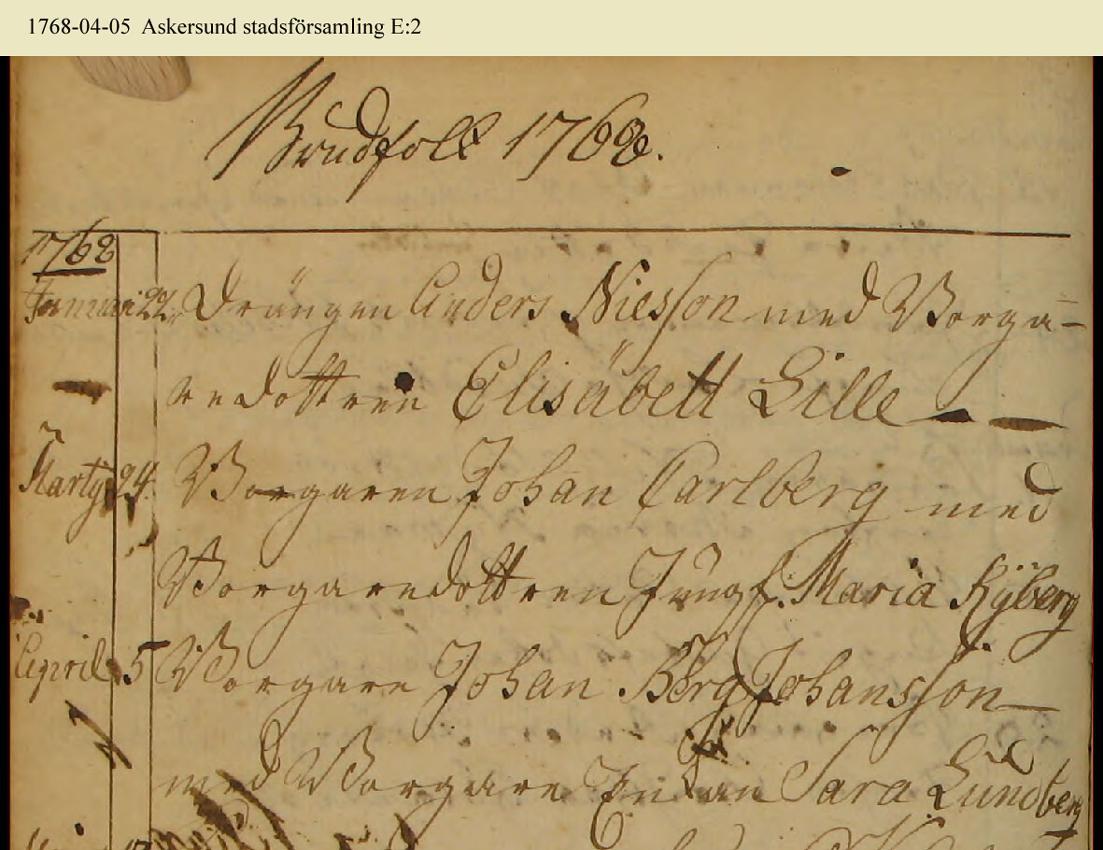 1768-04-05 Askersund stadsförsamling E:2
Brudfolk 1768.
1768
Januari 22. Drängen Anders Nilsson med Borga-
redottren Elisabett Lille
Marty 24. Borgaren Johan Carlberg med
Borgaredottren Jungf. Maria Ryberg
April 5 Borgare Johan Berg Johansson
med Borgare Enkan Sara Lundberg